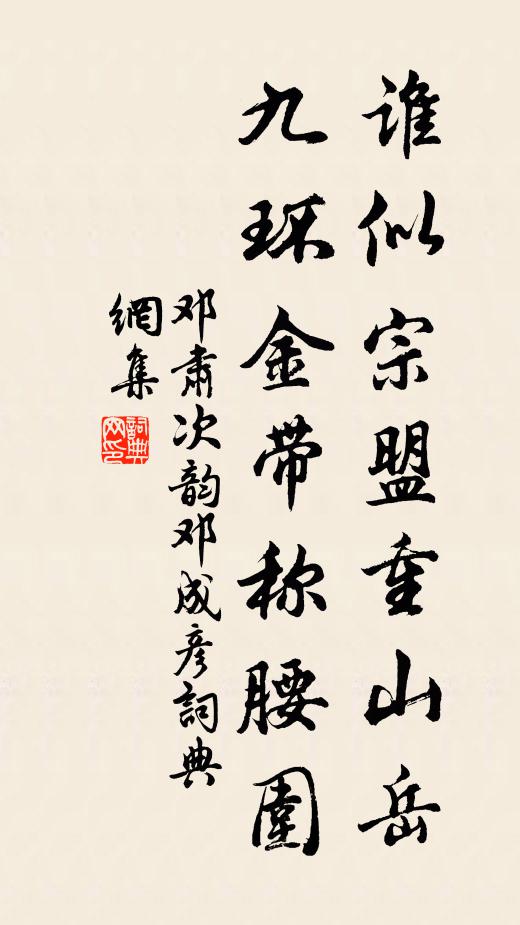 谁似宗盟重山岳
九环金带称腰围
邓肃次韵邓成彦詞典
網集
詞典
网印